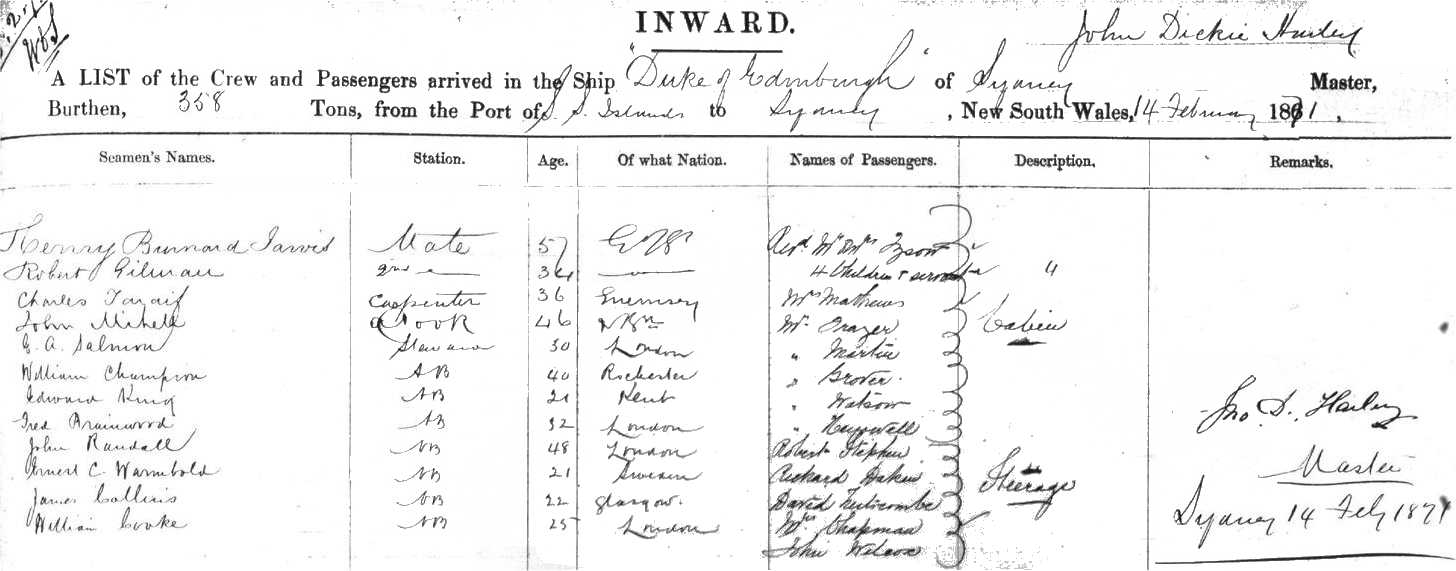 INWARD.
John Dickie Harley
A LIST of the Crew and Passengers arrived in the Ship "Duke of Edinburgh" of Sydney Master,
Burthen, 358 Tons, from the Port of S. S. Islands to Sydney, New South Wales, 14 February 1871.
Seamen's Names. Station. Age. Of what Nation. Names of Passengers. Description. Remarks.
Henry Burnard Jarvis Mate 57 Revd Mr & Mrs Tyson
Robert Gilman 2nd " 34 4 Children & servant "
Charles Carpenter 36 Guernsey Mrs Mathews
John Cook 46 Mr Frazer Cabin
G. A. Salmon Steward 30 London " Martin
William Champion AB 40 Rochester " Grover.
Edward King AB 21 Kent " Watson
Fred Brainwood AB 32 London "
Jno D. Harley
John Randall AB 48 London Robert Stephen
Ernest C. Warmbold AB 21 Sweden Richard Dakin Steerage Master
James Collins AB 22 Glasgow. David
William Cooke AB 25 London Mrs Chapman
Sydney 14 Feby 1871
John Wilcox